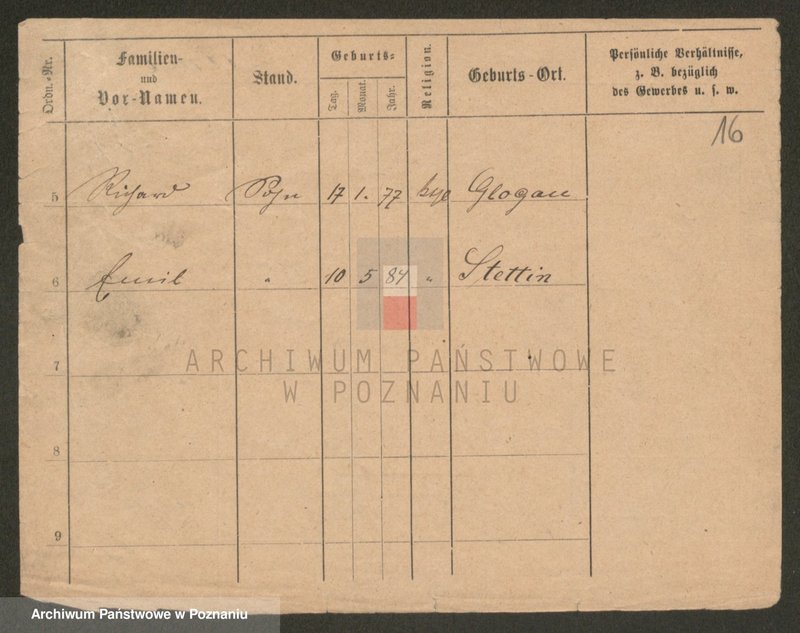 Ordn.-Nr.
Familien-
und
Vor-Namen.
Stand.
Geburts-
Tag.
Monat.
Jahr.
Religion.
Geburts-Ort.
Persönliche Verhältnisse,
z. B. bezüglich
des Gewerbes u. s. w.
16
5 Richard Sohn 17 1. 77 Glogau
6 Emil " 10 5 84 " Stettin
7
ARCHIWUM PAŃSTWOWE
W POZNANIU
8
9
Archiwum Państwowe w Poznaniu